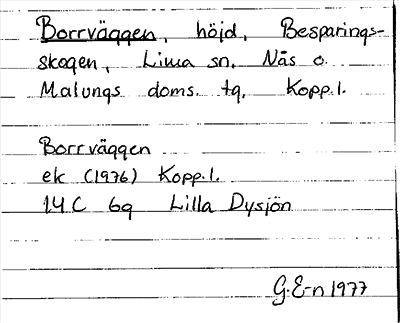 Borrväggen, höjd, Besparings-
skogen, Lima sn. Nås o.
Malungs doms. tg, Kopp.l.
Borrväggen
ek (1976) Kopp.l.
14 C 6g Lilla Dysjön
G.E-n 1977